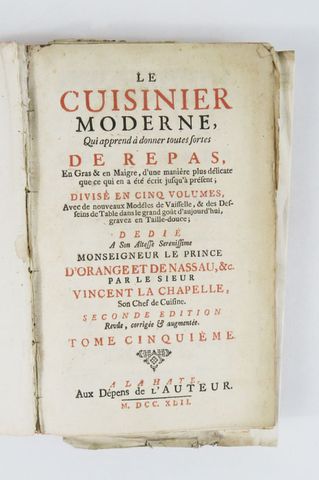 LE
CUISINIER
MODERNE,
Qui apprend à donner toutes sortes
DE REPAS,
En Gras & en Maigre, d'une manière plus délicate
que ce qui en a été écrit jusqu'à présent;
DIVISÉ EN CINQ VOLUMES,
Avec de nouveaux Modéles de Vaisselle, & des Des-
seins de Table dans le grand goût d'aujourd'hui,
gravez en Taille-douce;
DEDIÉ
A Son Altesse Serenissime
MONSEIGNEUR LE PRINCE
D'ORANGE ET DE NASSAU, &c.
PAR LE SIEUR
VINCENT LA CHAPELLE,
Son Chef de Cuisine.
SECONDE EDITION
Revûe, corrigée & augmentée.
TOME CINQUIÉME.
A LA HAYE,
Aux Dépens de L'AUTEUR.
M. DCC. XLII.